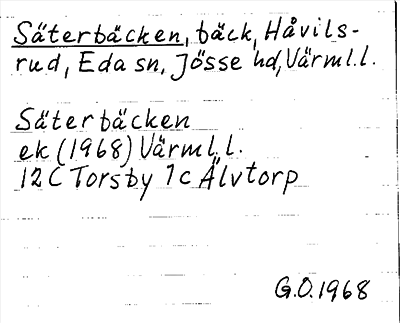 Säterbäcken, bäck, Håvils-
rud, Eda sn, Jösse hd, Värml.l.
Säterbäcken
ek (1968) Värml.l.
12C Torsby 1c Älvtorp
G.O.1968